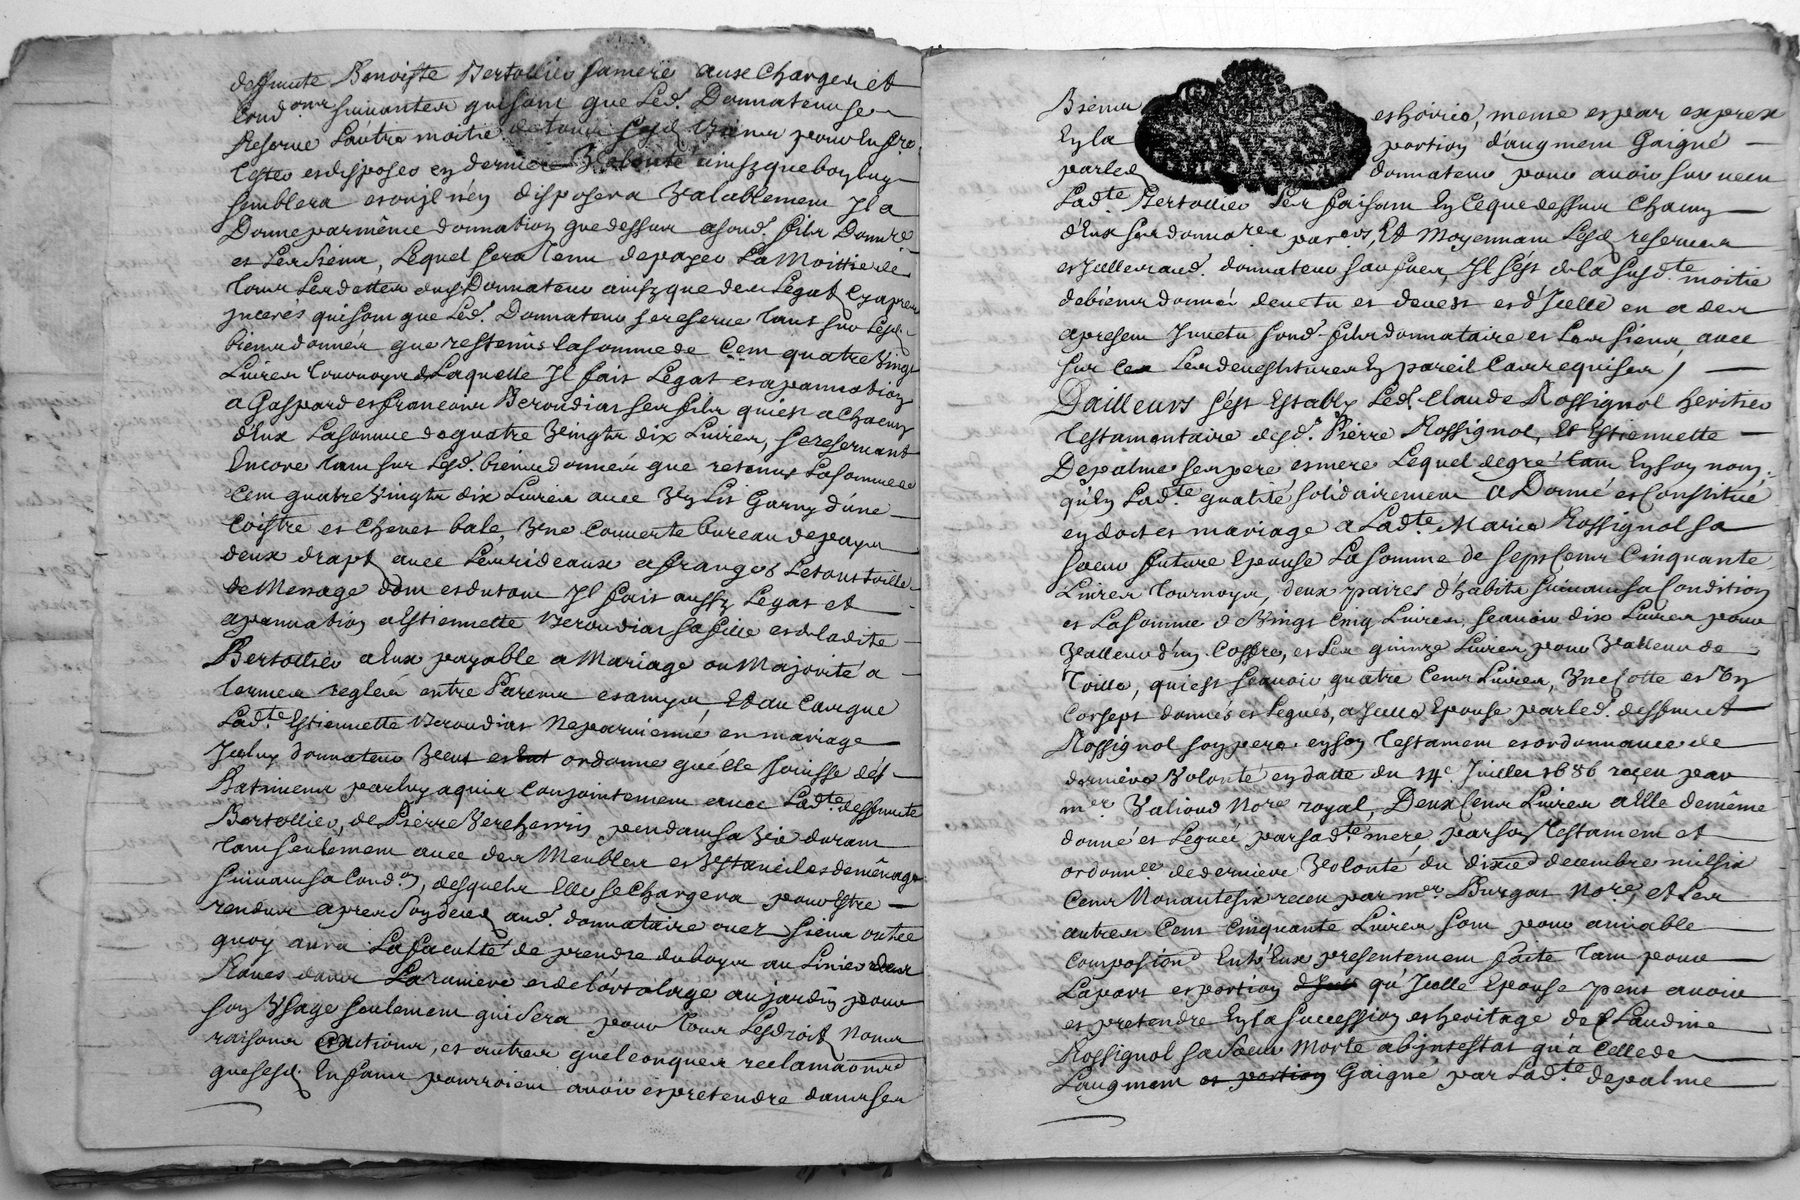 deffunte Benoiste Bertollier sa mere aux charges et
cond.ons suivantes qui sont que led. Donnateur se
Reserve l'autre moitié de tous sesd. biens pour en pro
lester et disposer en derniere Volonté ainsy que bon luy
semblera et ou il n'en disposera Valablement Il a
Donne par même donnation que dessus a sond. fils Donn.re
et les siens, Lequel sera tenu de payer La Moittié de
tous les dettes dud. Donnateur ainsy que des Legats cy apres
inserés qui sont que Led. Donnateur se reserve tant sur Lesd.
biens donnes que restenus la somme de Cent quatre Vingt
Livres tournoys de Laquelle Il fait Legat et apannation
a Gaspard et francois Veroudias ses fils qui est a chacun
d'Eux La somme de quatre Vingts dix Livres, se reservant
Encore tant sur Lesd. biens donnés que retenus La somme de
Cent quatre Vingts dix Livres avec Un Lit Garny d'une
Coistre et chevet bale, Une Couverte bureau de pays
deux draps avec Les rideaux a franges Le tout toille
de Menage dont et du tout Il fait aussy Legat et
apannation a Estiennette Veroudias sa fille et de ladite
Bertollier a Eux payable a Mariage ou Majorité a
termes reglés entre Parens et amys, Et au Cas que
Lad.te Estiennette Veroudias ne parvienne en mariage
Iceluy donnateur Veut et ordonne qu'elle Jouisse des
Batimens par luy aquis Conjointement avec Lad.te deffunte
Bertollier, de Pierre Verchenin pendant sa Vie durant
tant seulement avec des Meubles et Ustanciles de ménage
suivant sa Cond.on, desquels Elle se Chargera pour Estre
rendus apres son deced aud. donnataire ou es siens outre
quoy aura La faculté de prendre du boys au Linier deux
Raues dans La raviere et de l'ortolage au jardin pour
son Usage seulement qui sera pour tous Lesdroits Noms
raisons et actions, et autres quelconques reclamaôns
que sesd. Enfans pourroient avoir et pretendre dans ses
Biens et hoirie, meme et par expres
En la portion d'augment Gaigné
par led. donnateur pour avoir survecu
Lad.te Bertollier Les faisant En Ce que dessus Chacun
d'Eux ses donna.res par.ers, Et Moyennant Lesd. reserves
et Icelles aud. donnateur sauves, Il s'est de la susd.te moitié
de biens donnés devetu et devest et d'Icelle en a des
a present Invetu sond. fils donnataire et Les siens, avec
sur Ce Les devestitures En pareil Cas requises /
Dailleurs s'est Estably Led. Claude Rossignol heritier
testamentaire desd. Pierre Rossignol, Et Estiennette
Depalme ses pere et mere Lequel degré tant En son nom,
qu'En Lad.te qualité solidairement a Donné et Constitué
en dot et mariage a Lad.te Marie Rossignol sa
soeur future Epouse La somme de sept Cens Cinquante
Livres tournoys, deux paires d'habits suivant sa Condition
et La somme de Vingt Cinq Livres, scavoir dix Livres pour
Valleur d'un Coffre, et Les quinze Livres pour Valleur de
Toille, qui est scavoir quatre Cens Livres, Une Cotte et Un
Corsept donnés et Legués, a Icelle Epouse par led. deffunct
Rossignol son pere en son testament et ordonnance de
derniere Volonté en datte du 14e. Juillet 1686 receu par
m.er Valioud No.re royal, Deux Cens Livres a Elle de même
donné et Legués par sad.te mere, par son Testament et
ordon.ce de derniere Volonté du dixe decembre mil six
Cens Nonante six receu par m.er Burgas No.re, et Les
autres Cent Cinquante Livres sont pour amiable
Composiond Entr'Eux presentement faite tant pour
La part et portion qu'Icelle Epouse peut avoir
et pretendre En la succession et heritage de Claudine
Rossignol sa soeur Morte abintestat qu'a Celle de
L'augment et portion Gaigné par Lad.te depalme